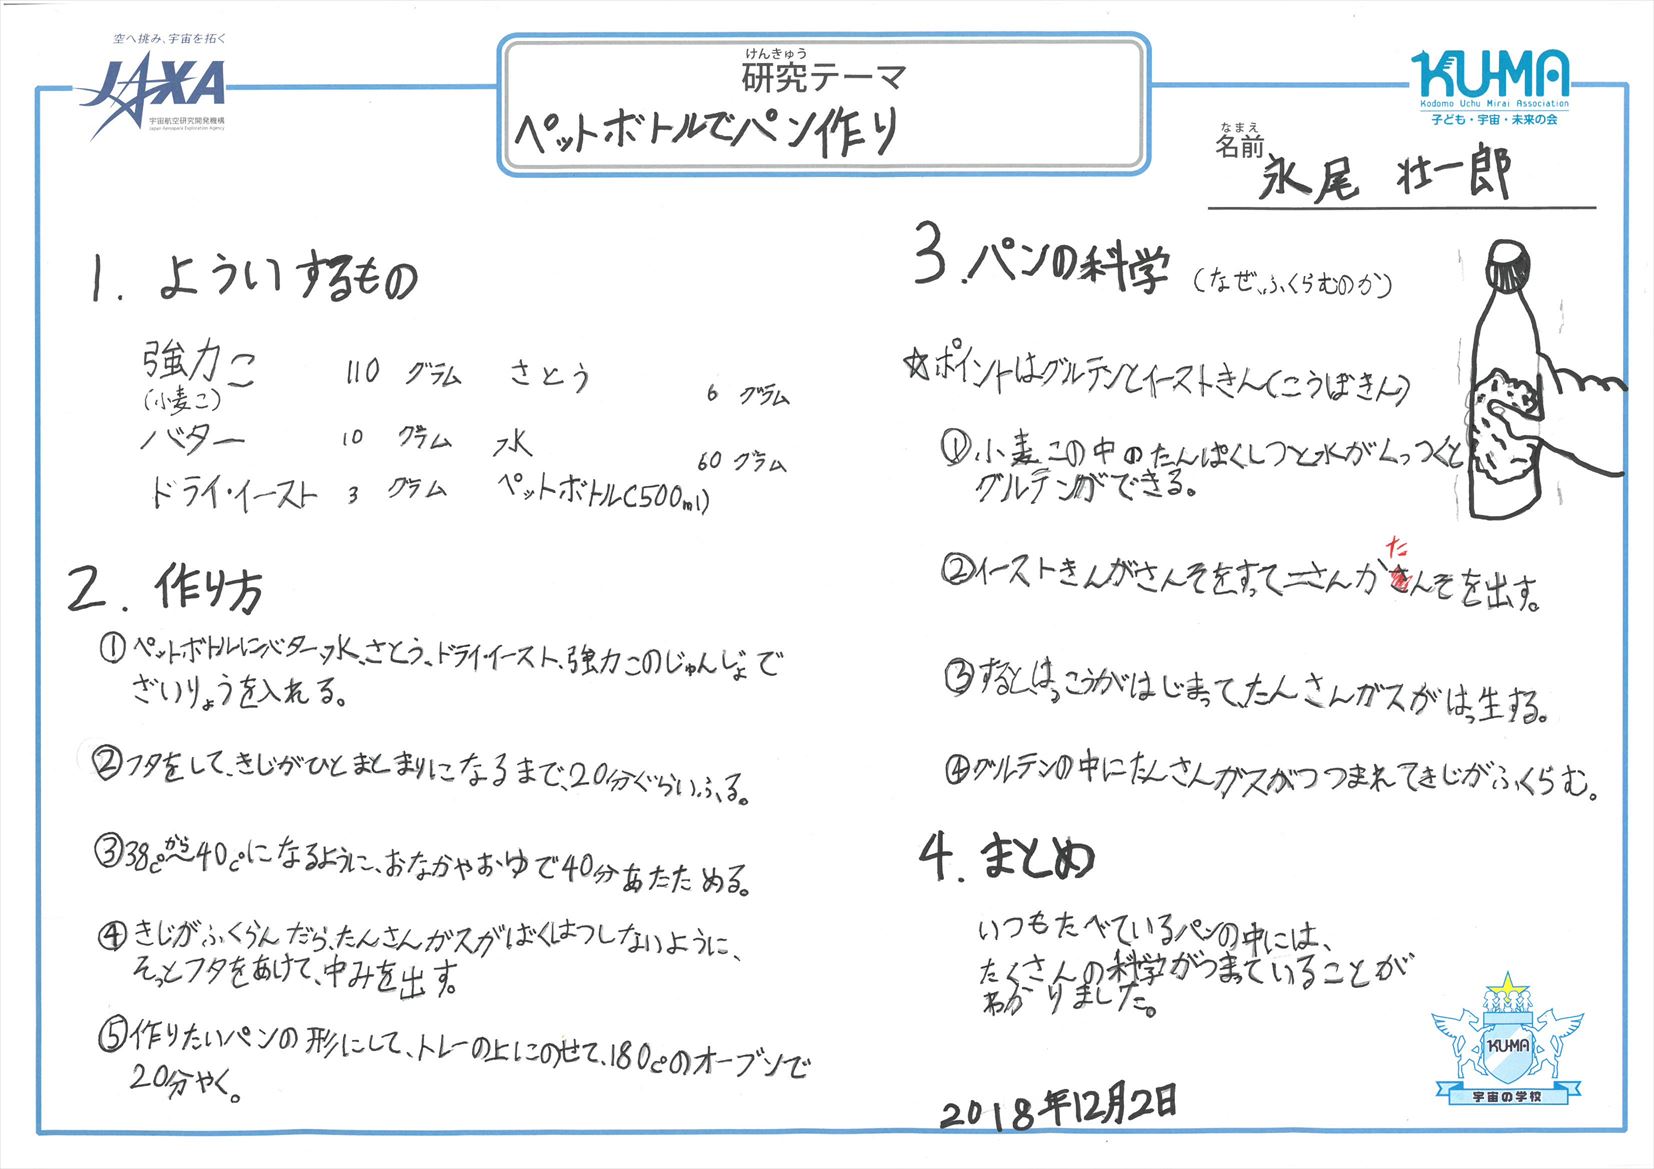 空へ挑み、宇宙を拓く
JAXA
宇宙航空研究開発機構
Japan Aerospace Exploration Agency
けんきゅう
研究テーマ
ペットボトルでパン作り
KU-MA
Kodomo Uchu Mirai Association
子ども・宇宙・未来の会
なまえ
名前
永尾 壮一郎
1. よういするもの
強力こ 110 グラム さとう 6 グラム
(小麦こ)
バター 10 グラム 水 60 グラム
ドライ・イースト 3 グラム ペットボトル(500ml)
2. 作り方
①ペットボトルにバター、水、さとう、ドライ・イースト、強力このじゅんじょで
ざいりょうを入れる。
②フタをして、きじがひとまとまりになるまで、20分ぐらいふる。
③38℃から〜40℃になるように、おなかやおゆで40分あたためる。
④きじがふくらんだら、たんさんガスがばくはつしないように、
そっとフタをあけて、中みを出す。
⑤作りたいパンの形にして、トレーの上にのせて、180℃のオーブンで
20分やく。
3. パンの科学 (なぜ、ふくらむのか)
☆ポイントはグルテンとイーストきん(こうぼきん)
①小麦この中のたんぱくしつと水がくっつくと
グルテンができる。
②イーストきんがさんそをすって二さんかたんそを出す。
③すると、はっこうがはじまって、たんさんガスがはっ生する。
④グルテンの中にたんさんガスがつつまれてきじがふくらむ。
4. まとめ
いつもたべているパンの中には、
たくさんの科学がつまっていることが
わかりました。
2018年12月2日
KU-MA
宇宙の学校